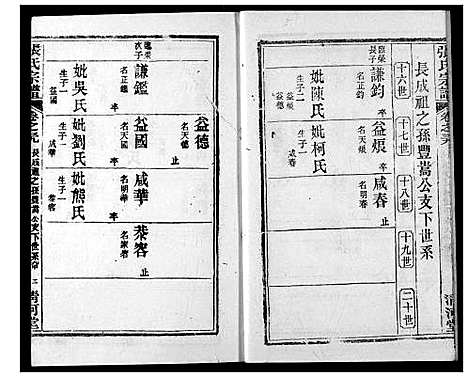 張氏宗譜
卷之九
清河堂
長成祖之孫豐嵩公支下世系
十六世
十七世
十八世
十九世
二十世
進榮長子
謙鈞
名正鈞
卒
妣陳氏
生子二
益烺
名天烺
卒
妣柯氏
生子一
咸春
名明春
止
進榮次子
謙鑑
名正鑑
卒
妣吳氏
生子二
益國
益德
止
益國
名天國
卒
妣劉氏
生子一
咸華
咸華
名明華
卒
妣熊氏
生子一
恭容
恭容
名家容
止
張氏宗譜
卷之九
長成祖之孫豐嵩公支下世系
二
清河堂